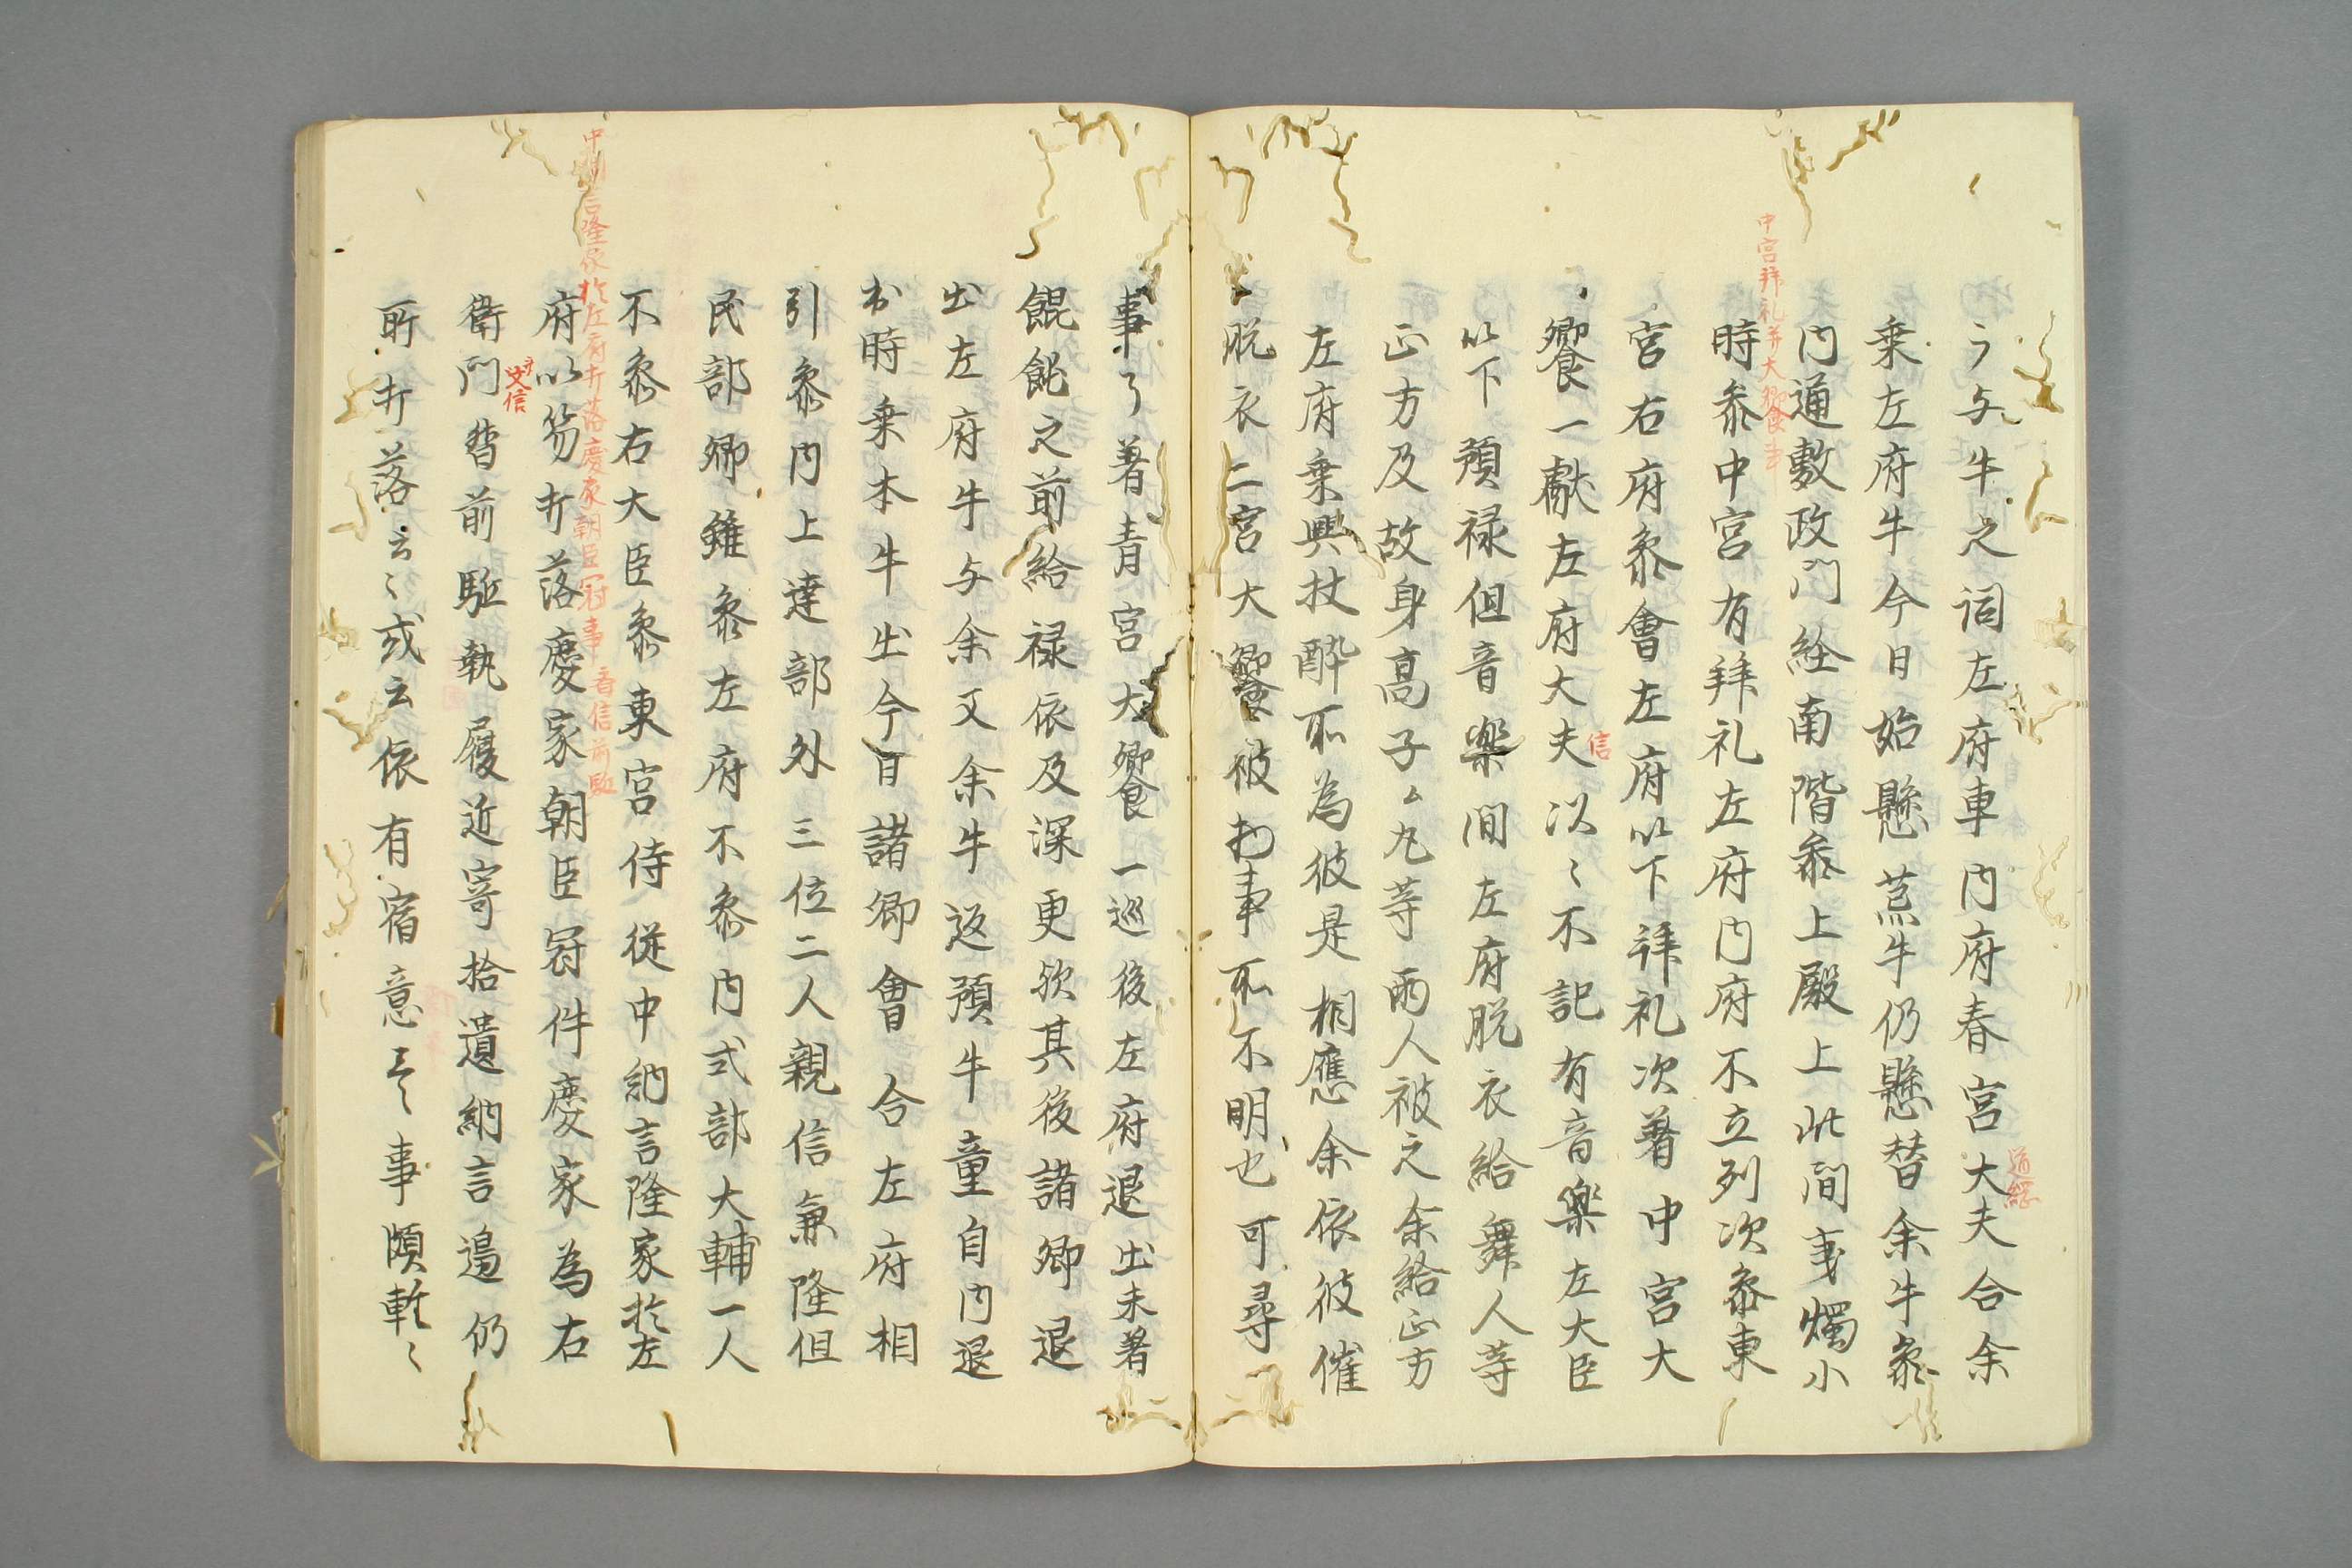 道綱
う与牛之詞左府車内府春宮大夫合余
乗左府牛今日始懸荒牛仍懸替余牛参
内通敷政門経南階参上殿上此間秉燭小
中宮拝礼并大饗事
時参中宮有拝礼左府内府不立列次参東
宮右府参會左府以下拝礼次著中宮大
信
饗一獻左府大夫以〻不記有音楽左大臣
以下預禄但音楽間左府脱衣給舞人等
正方及故身高子〻丸等両人被之余給正方
左府乗興扶酔所為彼是相應余依彼催
脱衣二宮大饗被物事所不明也可尋
事了著青宮大饗一巡後左府退出未著
餛飩之前給禄依及深更欤其後諸卿退
出左府牛与余又余牛返預牛童自内退
出時乗本牛出今日諸卿會合左府相
引参内上達部外三位二人親信兼隆但
民部卿雖参左府不参内式部大輔一人
不参右大臣参東宮侍従中納言隆家於左
中納言隆家於左府打落慶家朝臣冠事 音信前駈
府以笏打落慶家朝臣冠件慶家為右
文信
衛門督前駈執履近寄拾遺納言邉仍
所打落云〻或云依有宿意云々事頗軽〻